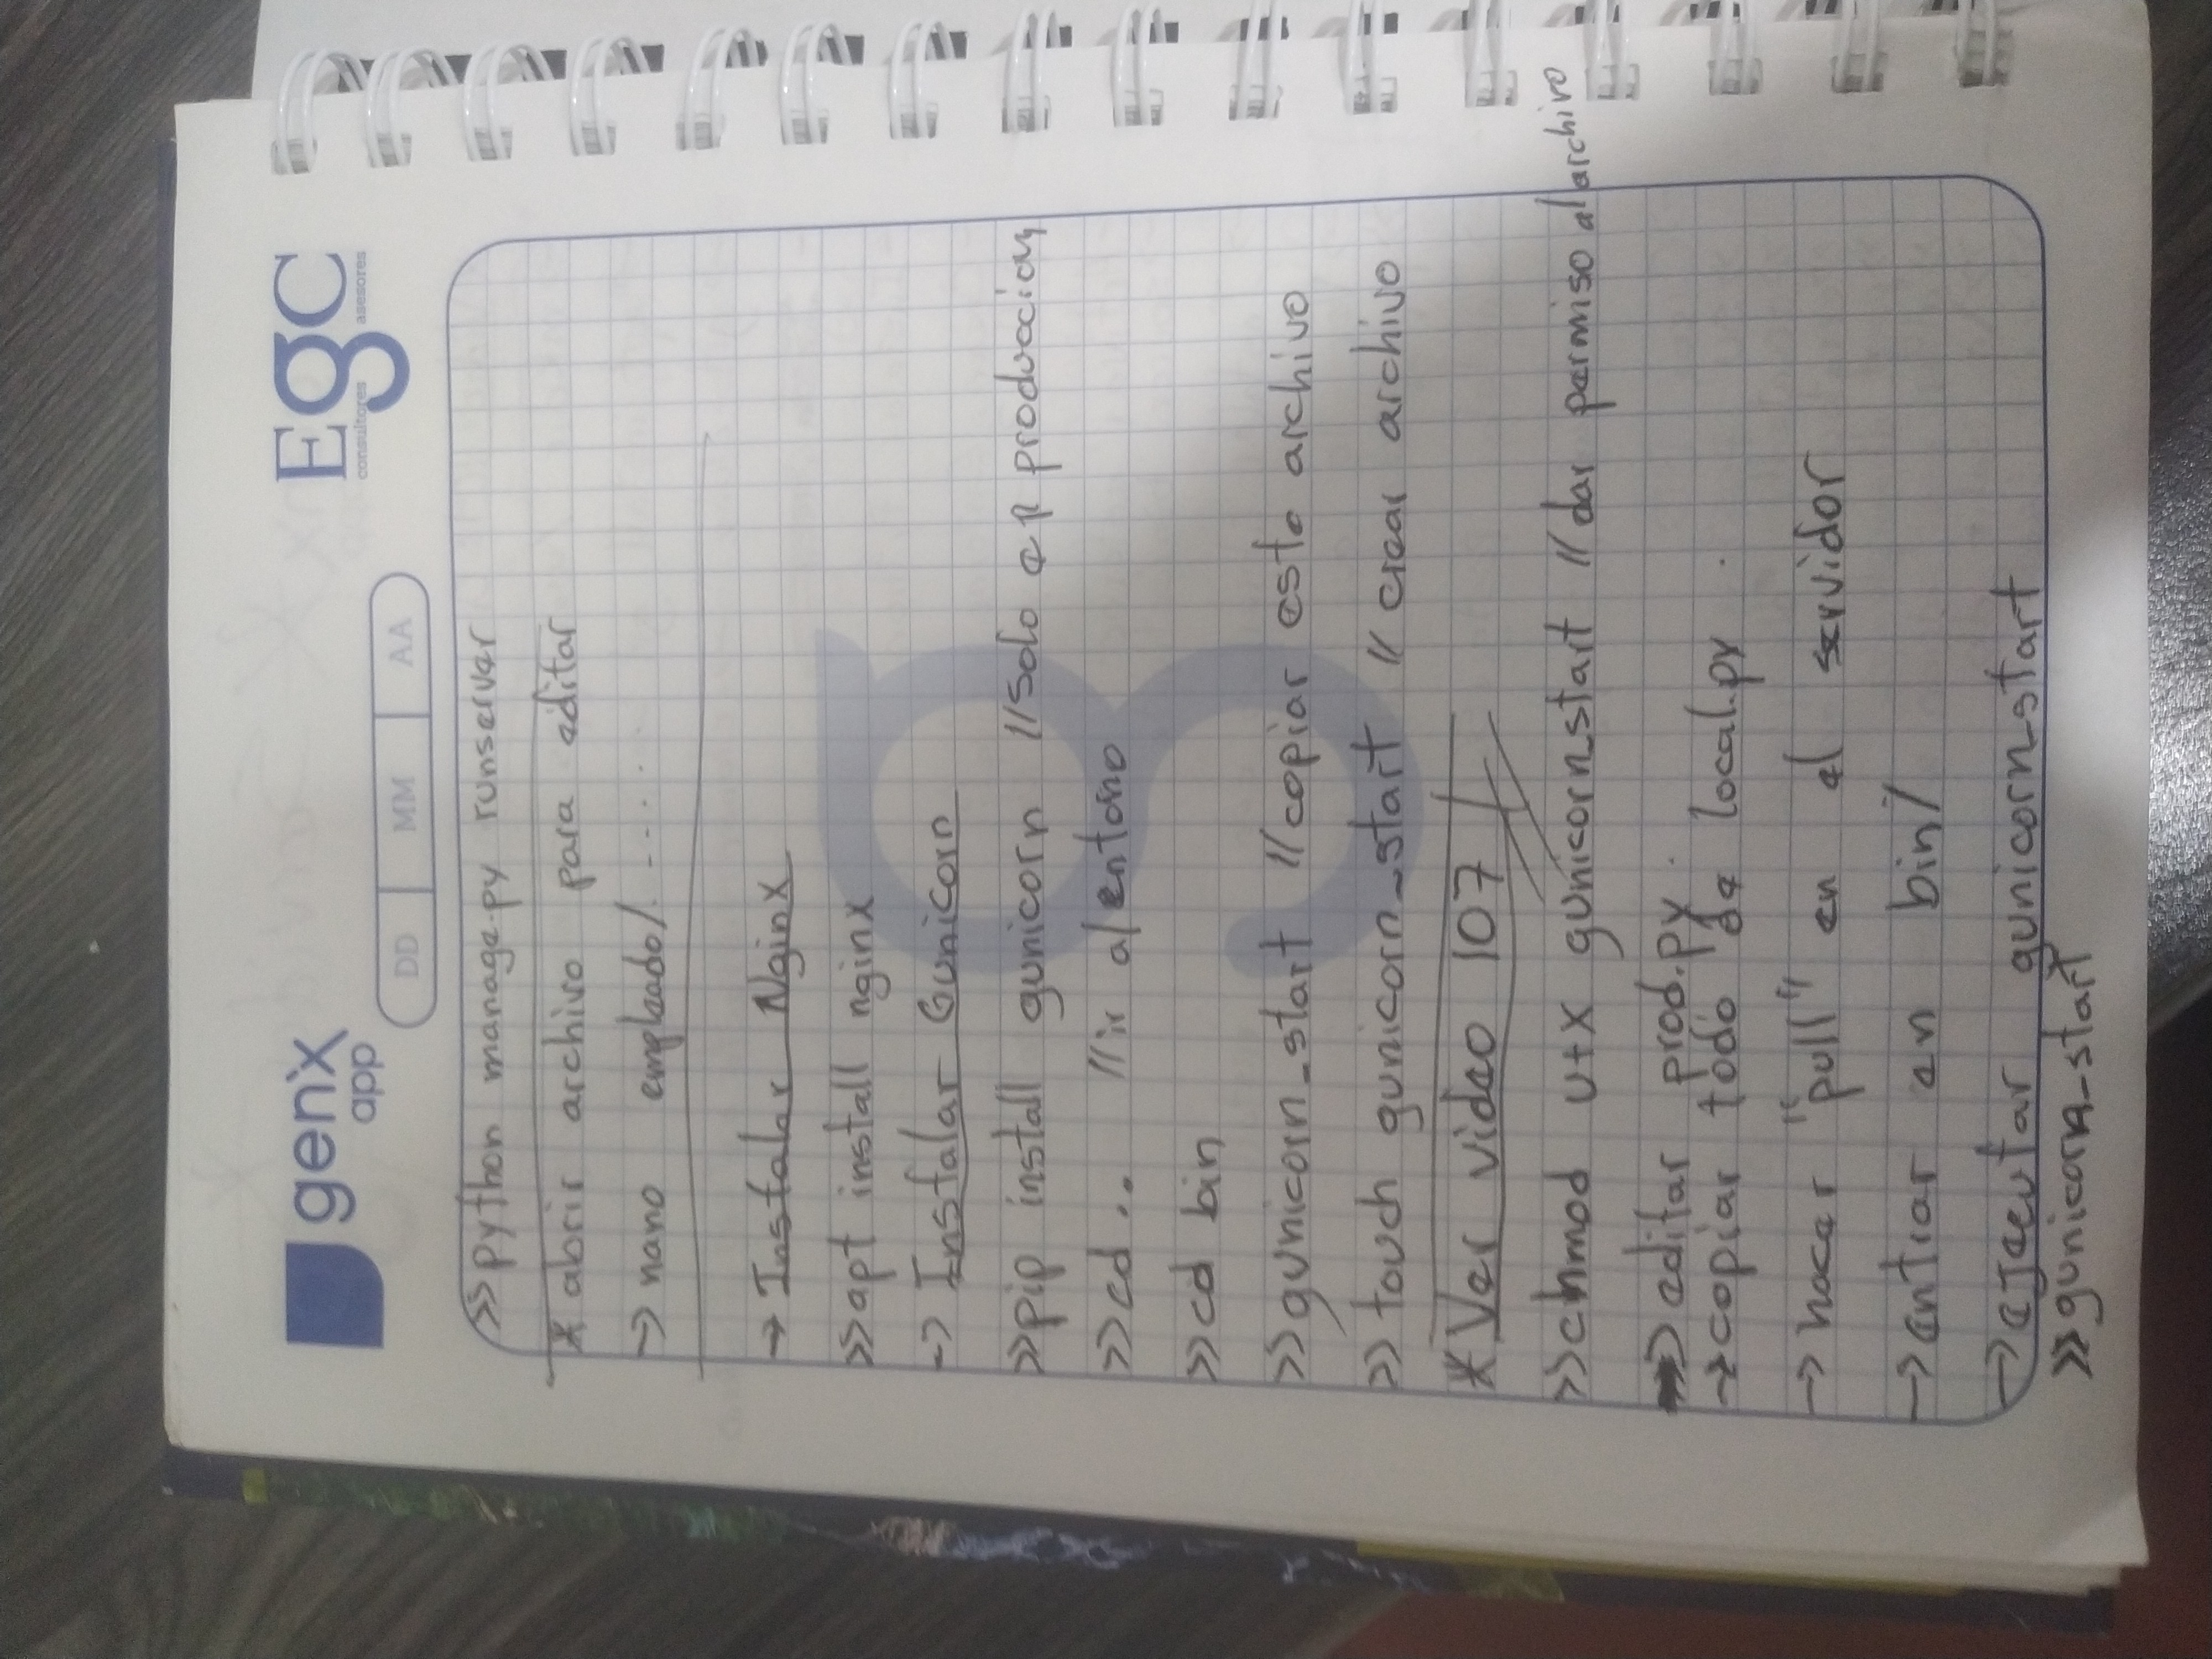 gen'x
app
EgC
consultores asesores
DD MM AA
>> python manage.py runserver
* abrir archivo para editar
-> nano empleado/. - - . . .
-> Instalar Nginx
>> apt install nginx
-> Instalar Gunicorn
>> pip install gunicorn //Solo en produccion
>> cd .. //ir al entorno
>> cd bin
>> gunicorn_start //copiar este archivo
>> touch gunicorn_start // crear archivo
* Ver video 107
>> chmod u+x gunicorn_start // dar permiso al archivo
-> editar prod.py
-> copiar todo de local.py
-> hacer "pull" en el servidor
-> entrar en bin/
-> ejecutar gunicorn_start
>> gunicorn_start